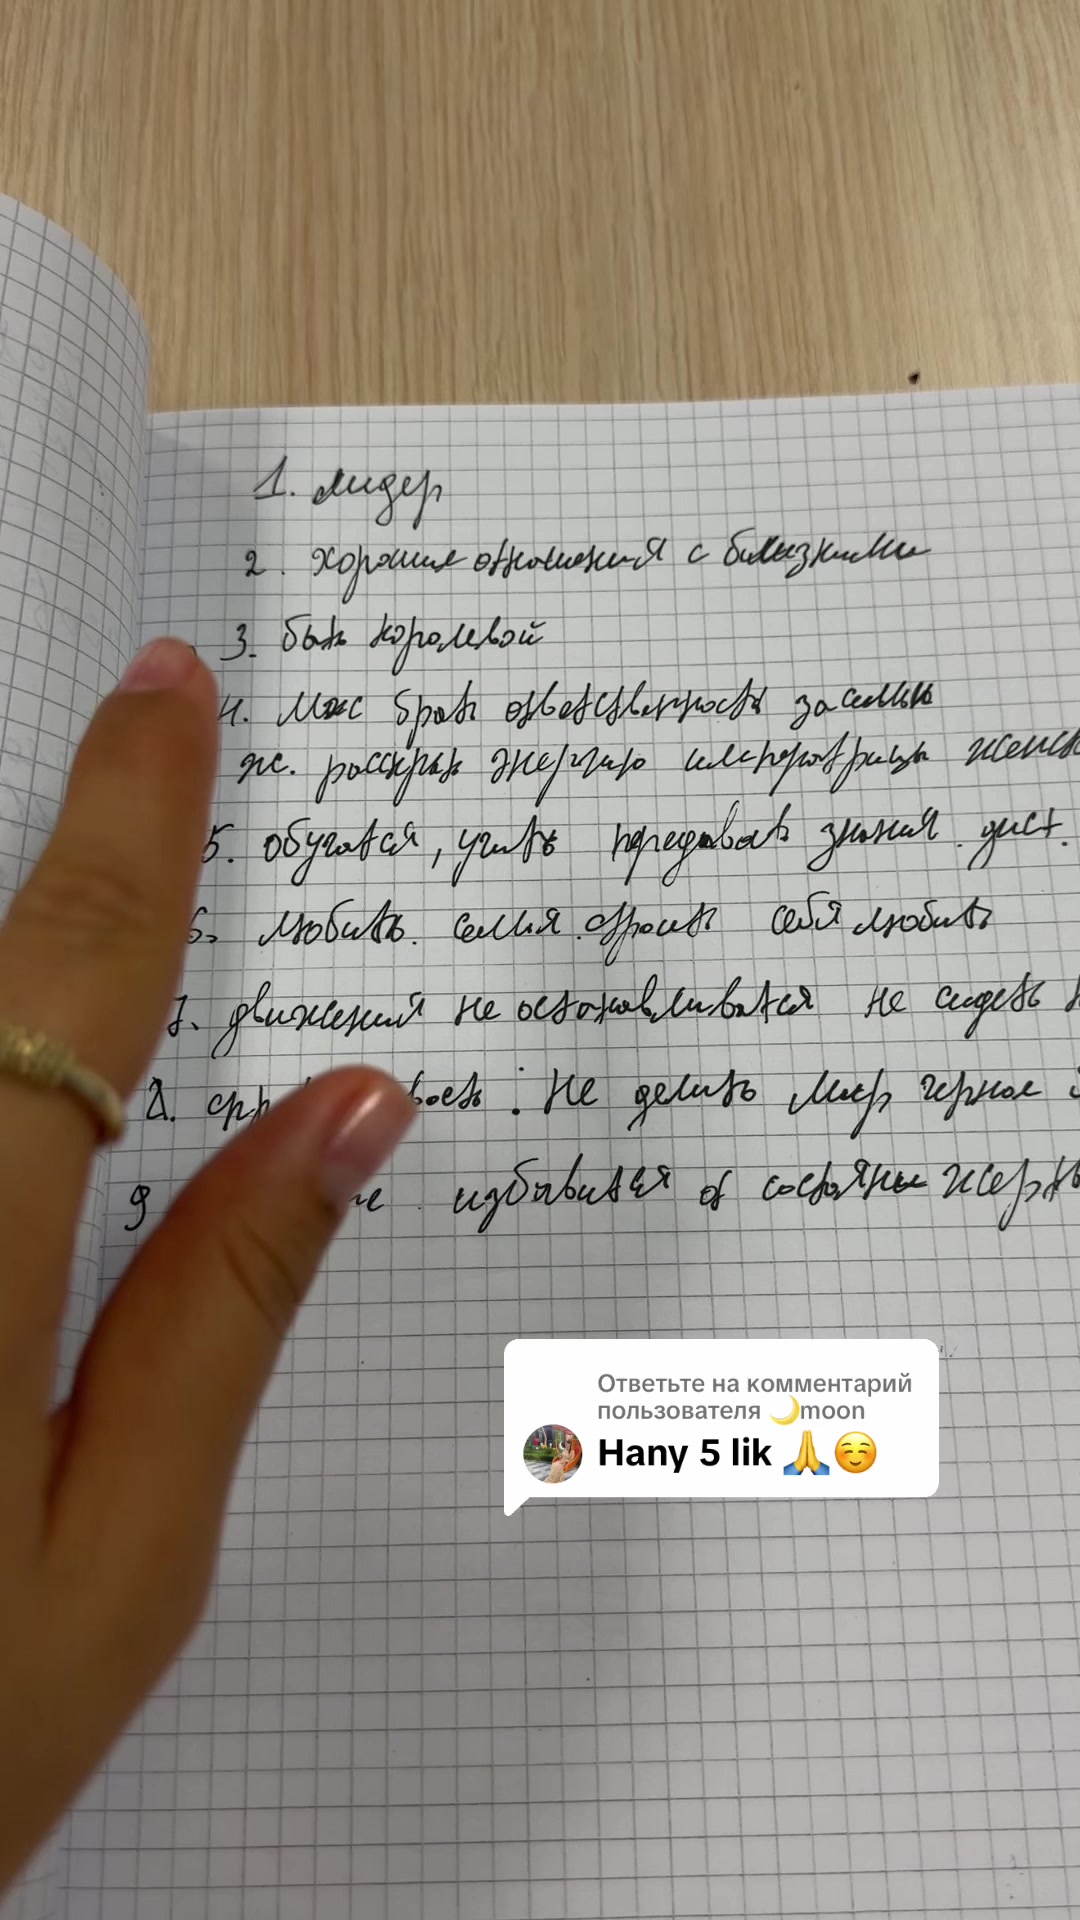 1. лидер
2. хорошие отношения с близкими
3. быть королевой
4. Муж брать ответственность за семью
ж. раскрыть энергию императрицы женск
5. обучатся, учить передовать знания. дист.
6. любить. семия строить себя любить
7. движений не останавливатся не сидеть
8. вость: Не делить мир черное
9 избавится от состояни жертв
Ответьте на комментарий
пользователя 🌙moon
Hany 5 lik 🙏☺️